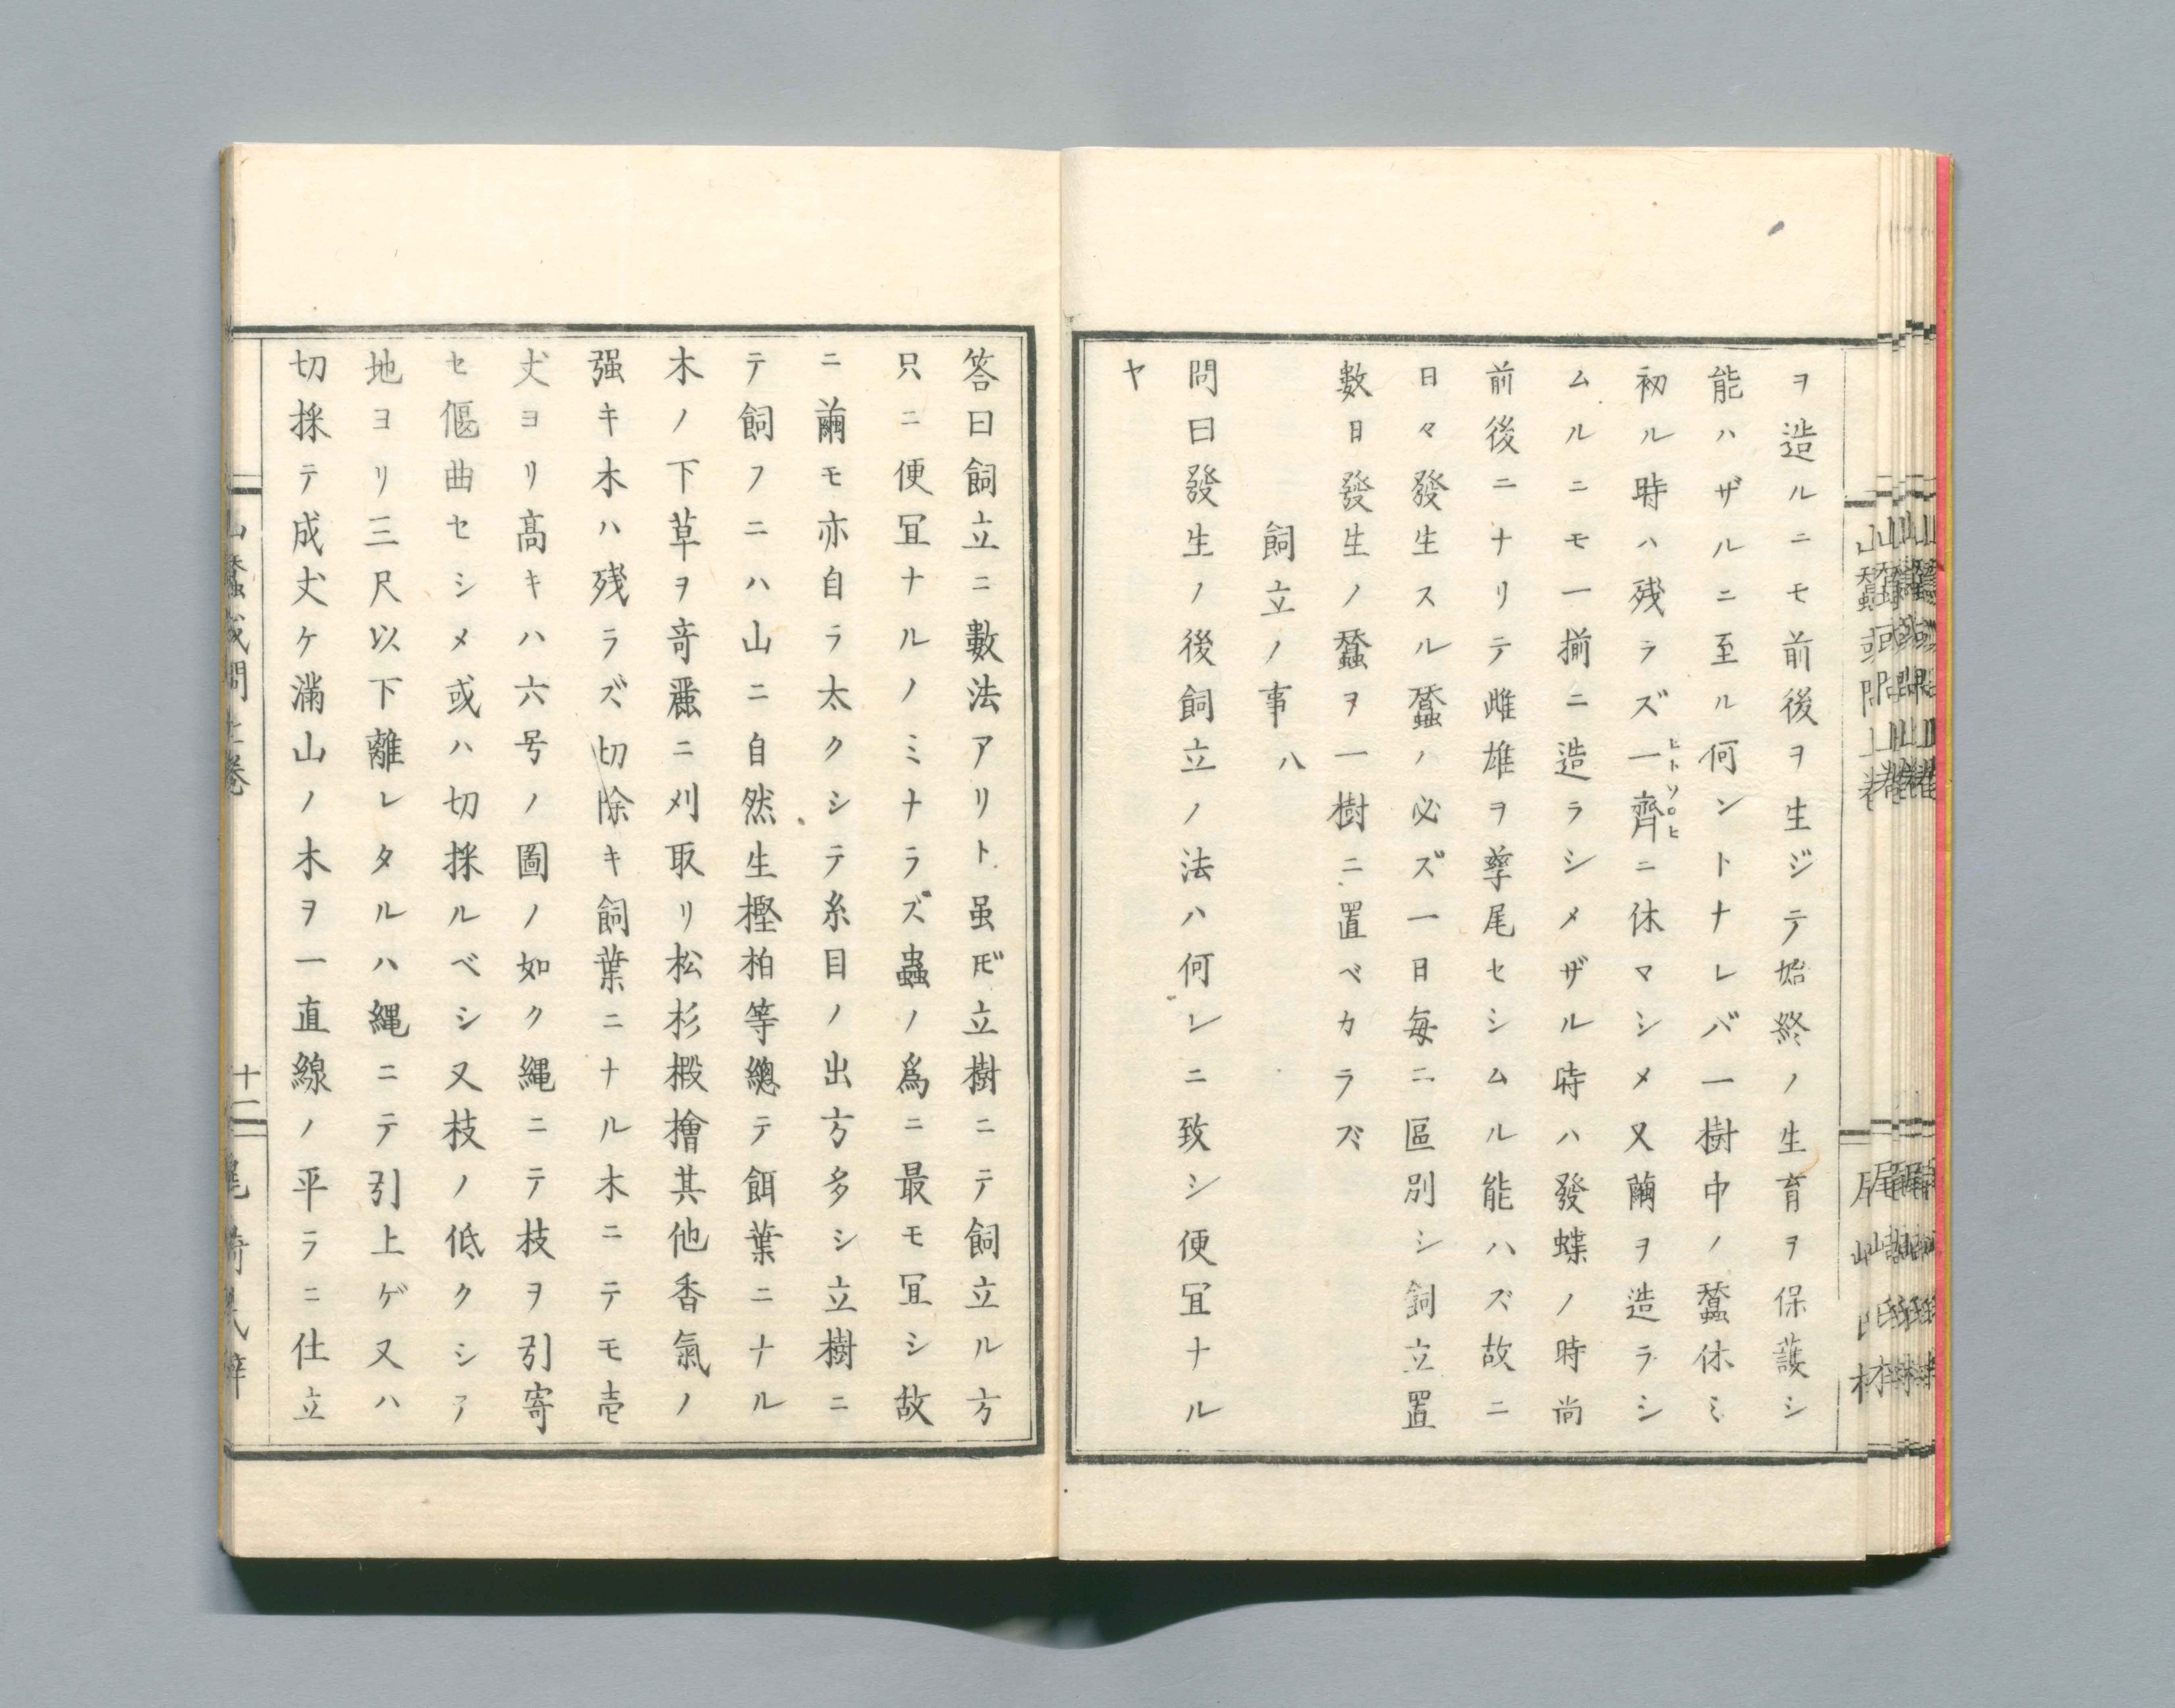 ヲ造ルニモ前後ヲ生ジテ始終ノ生育ヲ保護シ
能ハザルニ至ル何ントナレバ一樹中ノ蠶休ミ
初ル時ハ残ラズ一齊ヒトソロヒニ休マシメ又繭ヲ造ラシ
ムルニモ一揃ニ造ラシメザル時ハ發蝶ノ時尚
前後ニナリテ雌雄ヲ孳尾セシムル能ハズ故ニ
日々發生スル蠶ノ必ズ一日毎ニ區別シ飼立置
數日發生ノ蠶ヲ一樹ニ置ベカラズ
飼立ノ事 八
問曰發生ノ後飼立ノ法ハ何レニ致シ便冝ナル
ヤ
答曰飼立ニ數法アリト虽𪜈立樹ニテ飼立ル方
只ニ便冝ナルノミナラズ蟲ノ爲ニ最モ冝シ故
ニ繭モ亦自ラ太クシテ糸目ノ出方多シ立樹ニ
テ飼フニハ山ニ自然生樫柏等總テ餌葉ニナル
木ノ下草ヲ竒麗ニ刈取リ松杉椴檜其他香氣ノ
强キ木ハ残ラズ切除キ飼葉ニナル木ニテモ壱
丈ヨリ高キハ六号ノ圖ノ如ク縄ニテ枝ヲ引寄
セ偃曲セシメ或ハ切採ルベシ又枝ノ低クシテ
地ヨリ三尺以下離レタルハ縄ニテ引上ゲ又ハ
切採テ成丈ケ滿山ノ木ヲ一直線ノ平ラニ仕立
山蠶或問上巻 十二